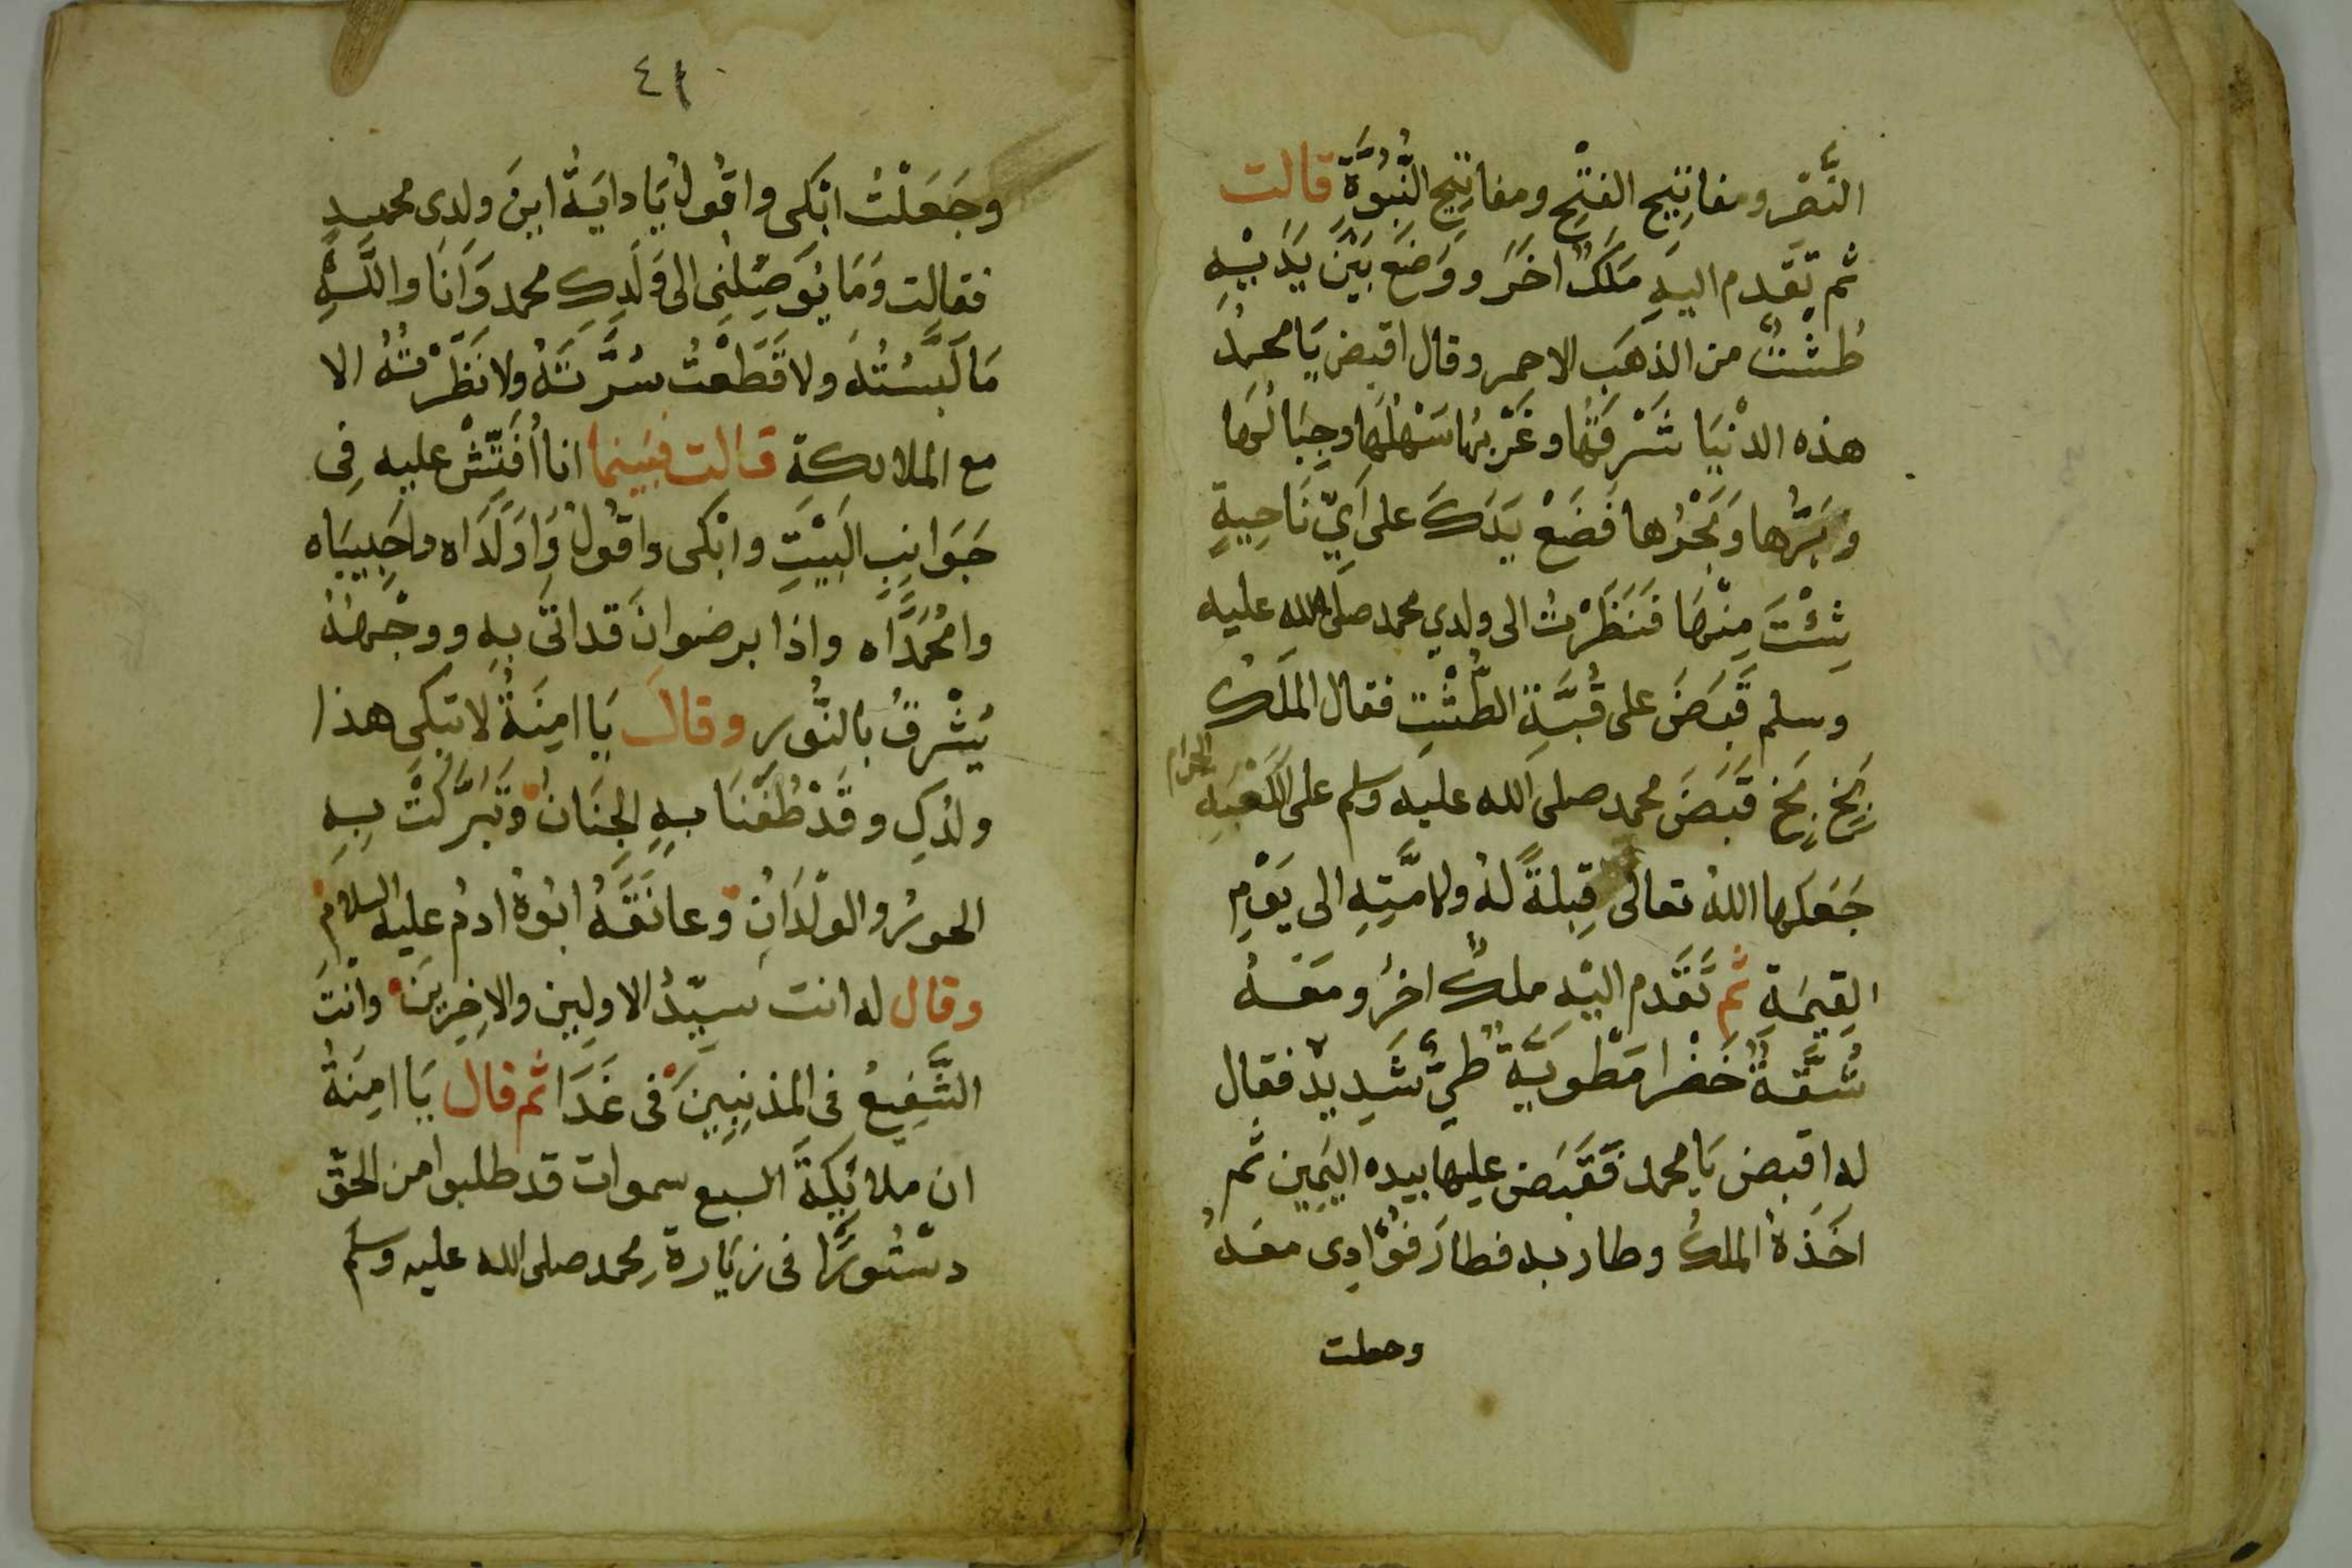 النَّصْرِ ومفاتِيح الفَتْحِ ومفاتِيح النُّبُوَّةِ قالت
ثم تقَدم اليهِ مَلَكٌ اخَرَ ووَضَعَ بَيْنَ يَدَيْهِ
طُشْتٌ من الذهَب الاحمر وقال اقبض يَا محمدُ
هذه الدنْيَا شَرْقَهُا وغَرْبهُا سَهْلُهَا وجِبَالُهَا
وبَرُّها وبَحْرُها فَضَعْ يَدَكَ على اَيِّ نَاحِيةٍ
شِئْتَ مِنْهَا فَنَظَرْتُ الى ولدي محمد صلى الله عليه
وسلم قَبَضَ على قُبَّةِ الطُّشْتِ فقال المَلَكُ
بَخٍ بَخٍ قَبَضَ محمد صلى الله عليه وسلم على الكَعْبَهِ الحرام
جَعَلَها اللهُ تعالى قِبلةً لهُ ولامَّتِهِ الى يَوْمِ
القِيمَةِ ثم تَقَدم اليْهِ ملكٌ اخرُ ومَعَهُ
شُقَّةٌ خَضْرا مَطْوِيَّةٌ طيٌّ شَدِيدٌ فقال
له اقبض يَا محمد فَقَبَضَ عليها بيده اليَمِين ثم
اخَذَهُ الملكُ وطار به فطارَ فُؤَادِى معَهُ
وجعلت
٤١
وجَعَلْتُ ابْكى واقُولُ يَا دايَةُ اينَ ولدى محمد
فقالت وَمَا يُوَصِّلُنِى الى وَلَدِكِ محمد وَانَا واللَّهِ
مَا لَبَّسْتُهُ ولا قَطَعْتُ سُرَّتَهُ ولا نَظَرْتُهُ الا
مع الملائكة قالت فبينما انا اُفَتِّشْ عليه فِى
جَوَانِبِ البَيْتِ وابْكى واقُولُ وَاوَلَدَاه واحَبِيبَاه
وامُحَمَّدَاه واذا برضوان قد اتى بهِ ووجْههُ
يُشْرِقُ بالنُّورِ وقال يَا امِنَةُ لا تبْكِى هذا
ولدُكِ وقَدْ طُفْنَا بهِ الجِنَان وتَبَرَّكَتْ بِهِ
الحورُ والولْدَانِ وعانَقَهُ ابُوهُ ادمُ عليه السلام
وقال له انت سَيِّدُ الاولِين والاخِرِين وانْتَ
الشَّفِيعُ فى المذنِبِينَ فى غَدَا ثم قال يَا امِنَةُ
ان ملائِكةَ السبع سموات قد طلبوا من الحق
دسْتُورًا فى زيَارة محمد صلى الله عليه وسلم